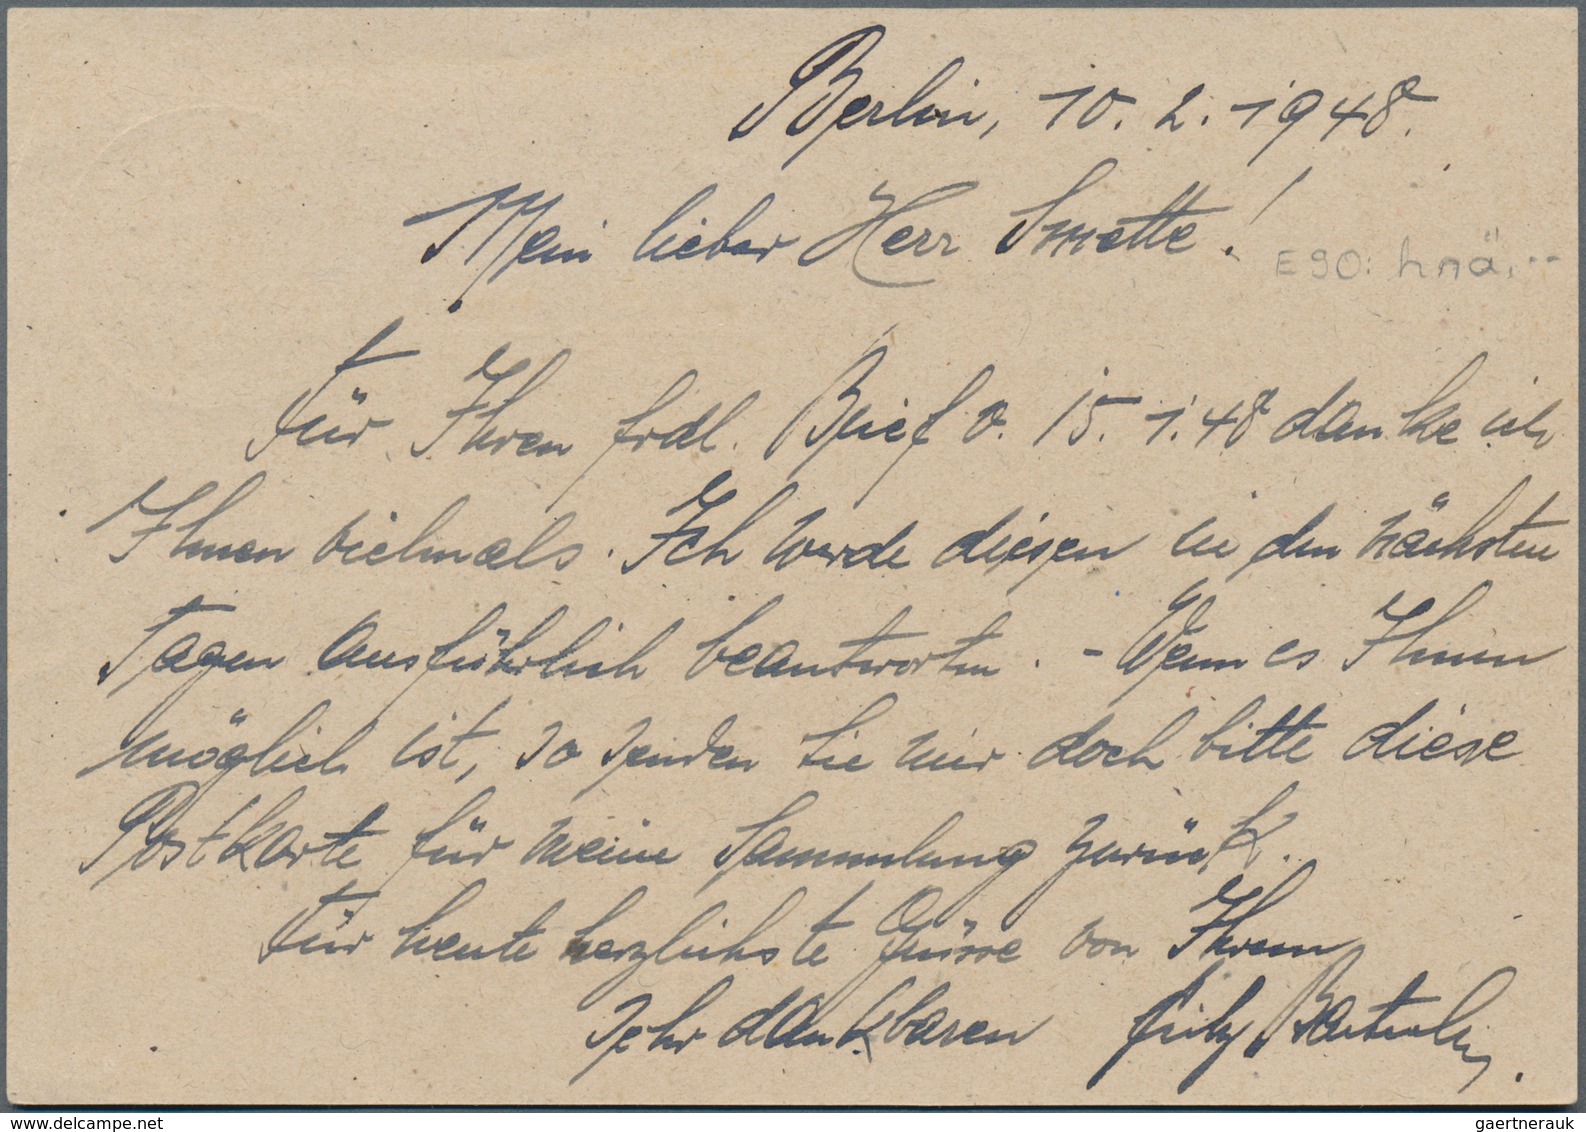 Berlin, 10.2.1948.
Mein lieber Herr Smette!
E90: hnä,--
Für Ihren frdl. Brief v. 15.1.48 danke ich
Ihnen vielmals. Ich werde diesen in den nächsten
Tagen ausführlich beantworten. - Wenn es Ihnen
möglich ist, so senden Sie mir doch bitte diese
Postkarte für meine Sammlung zurück.
Für heute herzlichste Grüsse von Ihrem
sehr dankbaren Fritz
www.delcampe.net
gaertnerauk